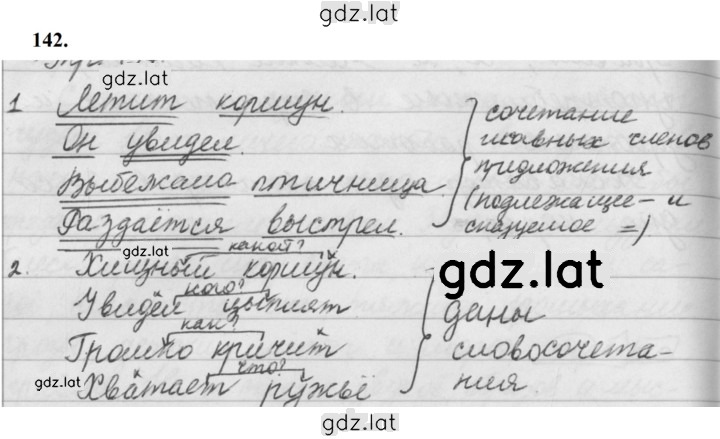 gdz.lat
142.
gdz.lat
1 Летит коршун.
Он увидел.
Выбежала птичница.
Раздаётся выстрел.
сочетание
главных членов
предложения
(подлежащее – и
сказуемое =)
gdz.lat
какой?
2. Хищный коршун.
кого?
Увидел цыплят
как?
Громко кричит
что?
gdz.lat
Хватает ружьё
gdz.lat
даны
словосочета-
ния.
gdz.lat